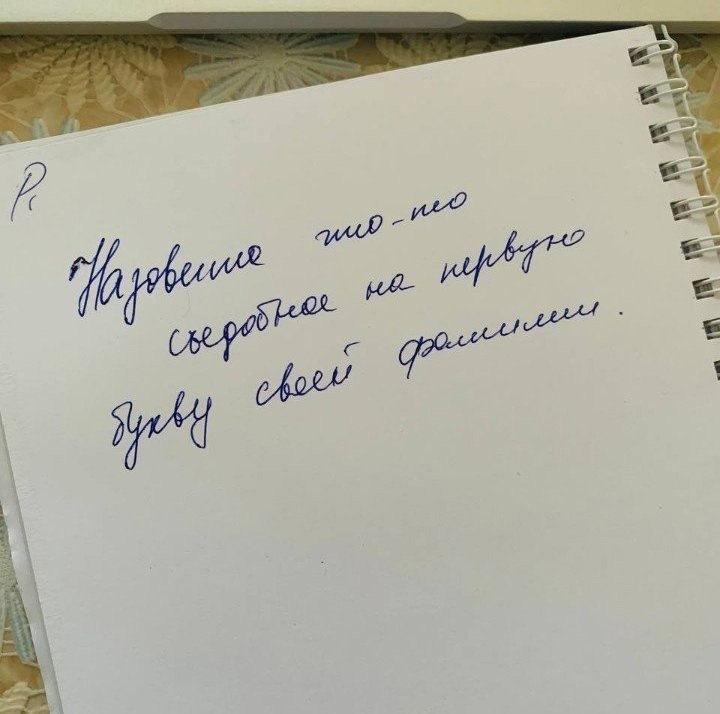 Назовите что-то
съедобное на первую
букву своей фамилии.